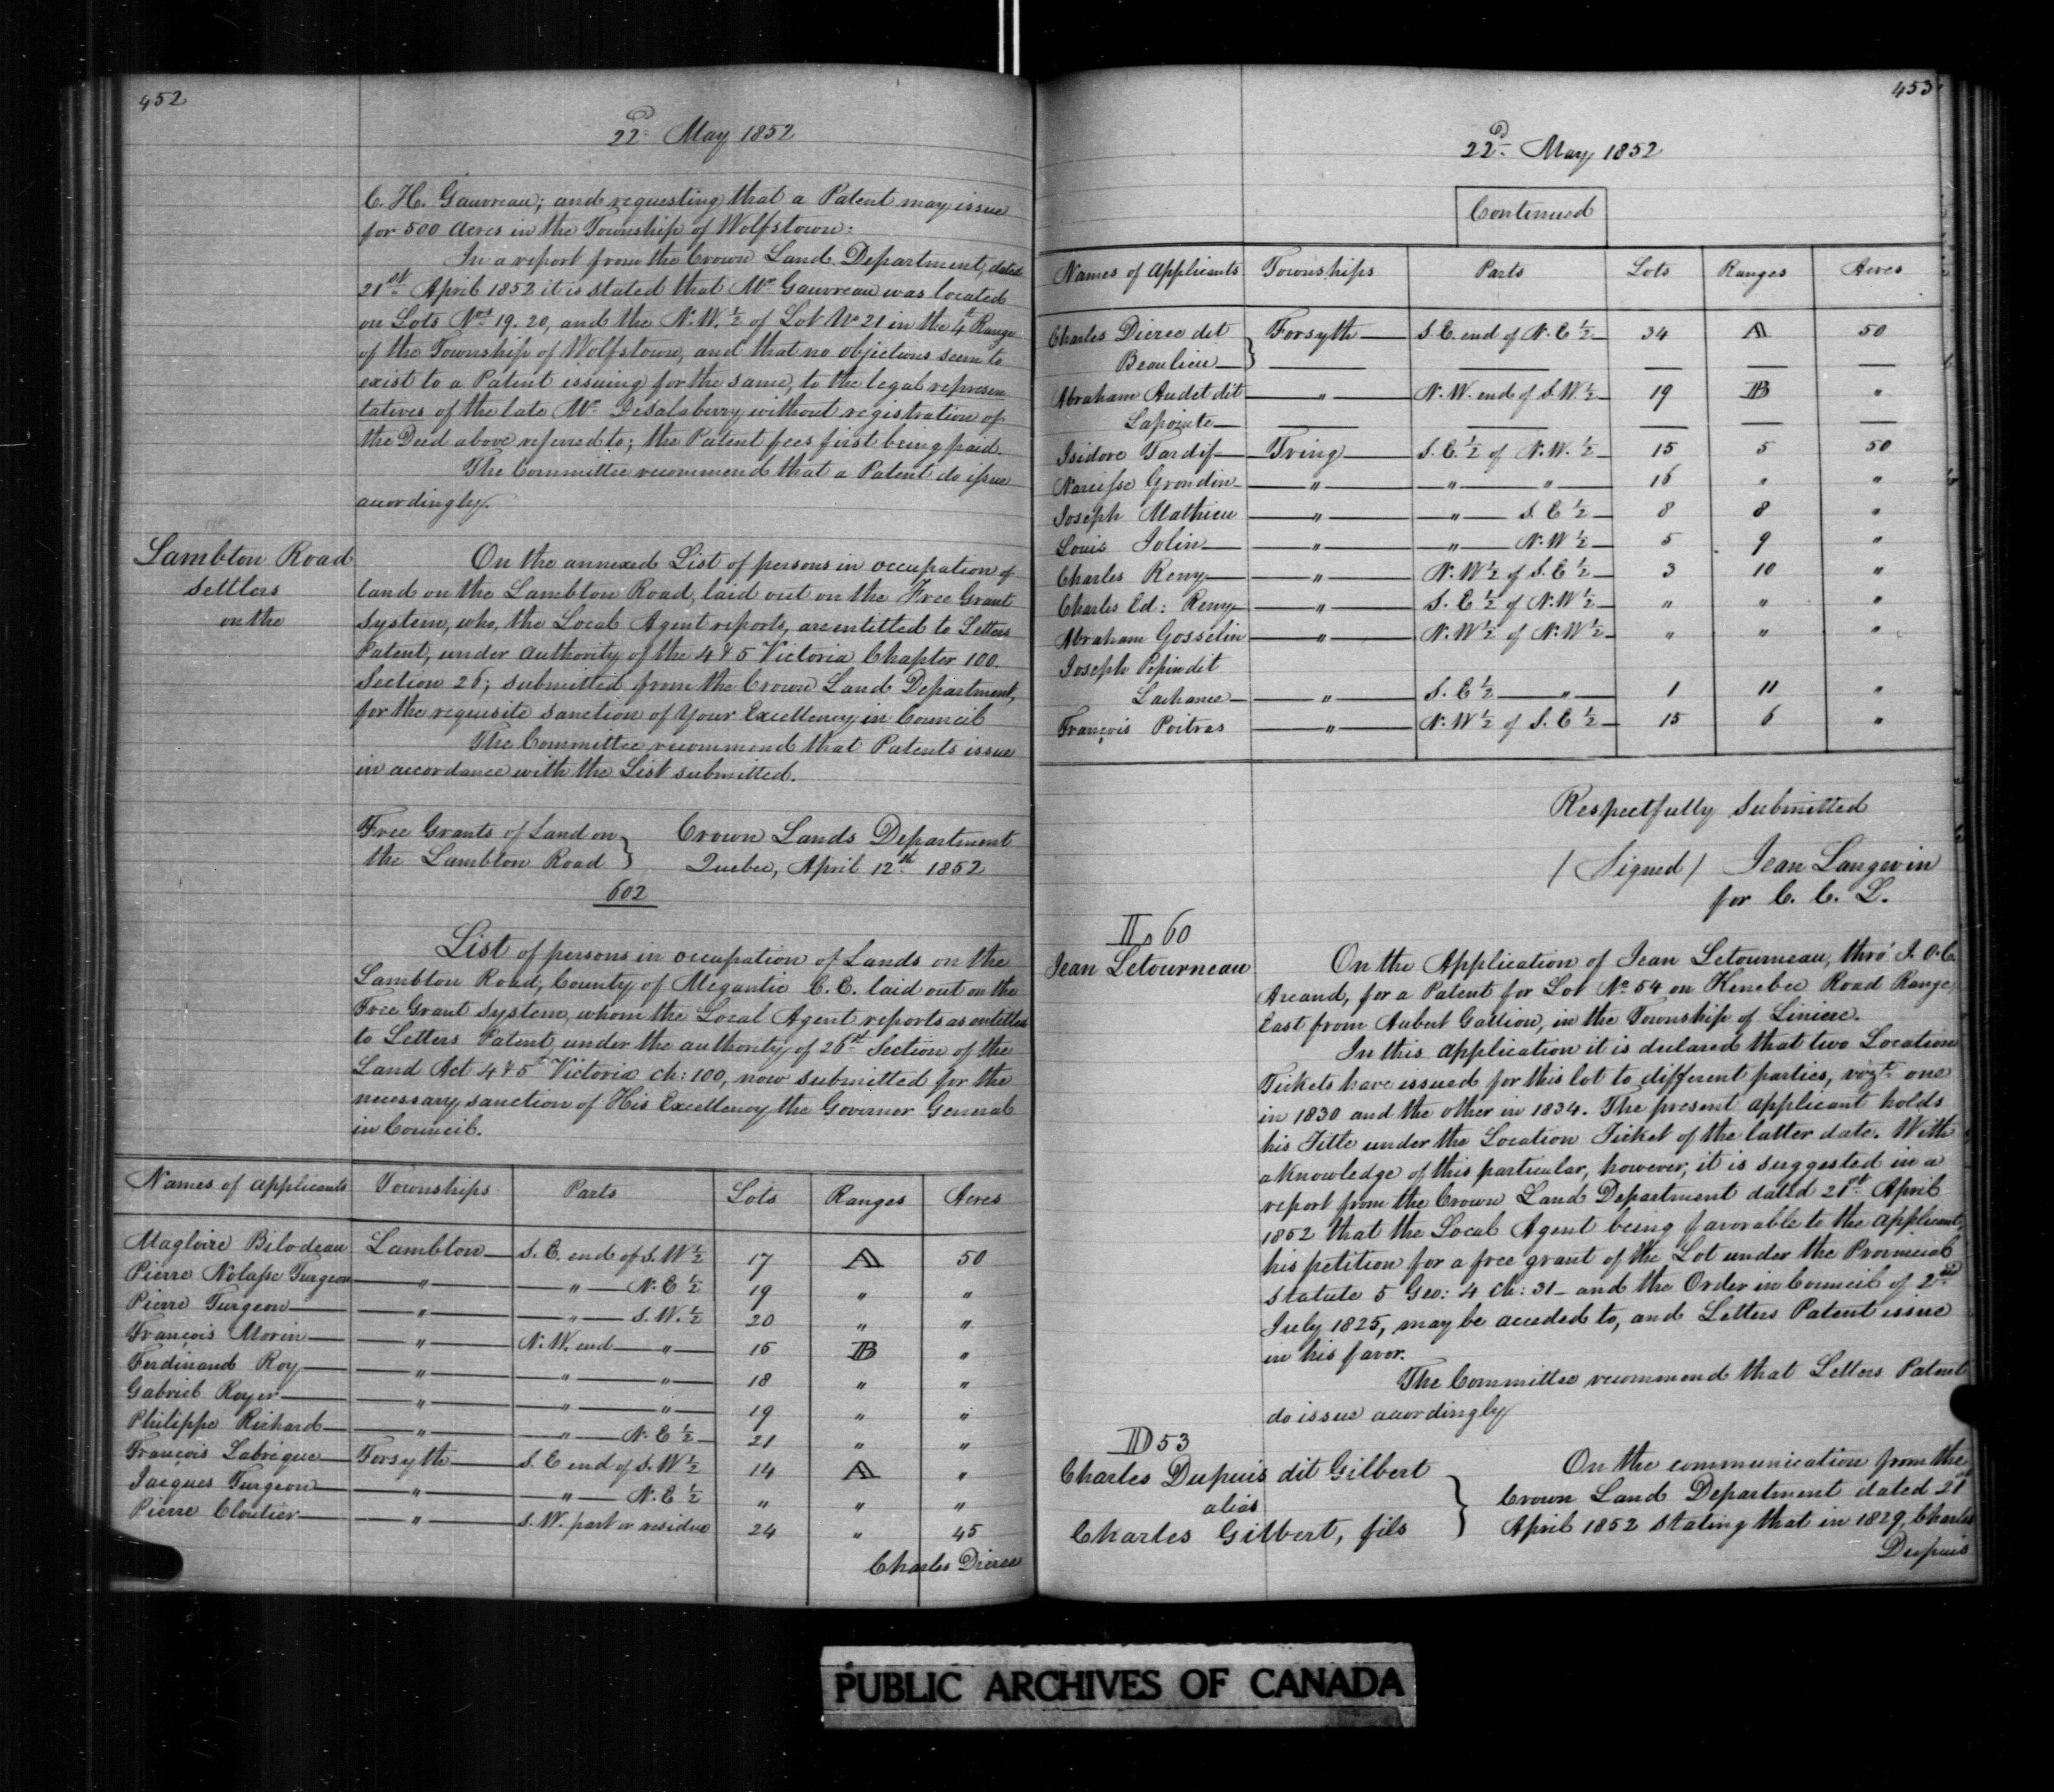 452
22d May 1852
C. H. Gauvreau; and requesting that a Patent may issue
for 500 Acres in the Township of Wolfstown:
In a report from the Crown Land Department, dated
21st April 1852 it is stated that Mr Gauvreau was located
on Lots Nos 19. 20, and the N.W. ½ of Lot No 21 in the 4th Range
of the Township of Wolfstown, and that no objections seem to
exist to a Patent issuing for the same, to the legal represen
tatives of the late Mr DeSalaberry without registration of
the Deed above referred to; the Patent fees first being paid.
The Committee recommend that a Patent do issue
accordingly.
Lambton Road
Settlers
on the
On the annexed List of persons in occupation of
land on the Lambton Road, laid out on the Free Grant
System, who, the Local Agent reports, are entitled to Letters
Patent, under authority of the 4 & 5 Victoria Chapter 100.
Section 26; submitted from the Crown Land Department,
for the requisite sanction of Your Excellency in Council
The Committee recommend that Patents issue
in accordance with the List submitted.
Free Grants of Land on } Crown Lands Department
the Lambton Road } Quebec, April 12th 1852
602
List of persons in occupation of Lands on the
Lambton Road, County of Megantic C.E. laid out on the
Free Grant System, whom the Local Agent reports as entitled
to Letters Patent under the authority of 26th Section of the
Land Act 4 & 5th Victoria ch: 100, now submitted for the
necessary sanction of His Excellency the Governor General
in Council.
Names of applicants Townships Parts Lots Ranges Acres
Magloire Bilodeau Lambton S. E. end of S. W ½ 17 A 50
Pierre Nolasse Turgeon " " N. E ½ 19 " "
Pierre Turgeon " " S. W. ½ 20 " "
François Morin " N. W. end " 15 B "
Ferdinand Roy " " " 18 " "
Gabriel Royer " " " 19 " "
Philippe Richard " " N. E ½ 21 " "
François Labrèque Forsyth S. E end of S. W ½ 14 A "
Jacques Turgeon " " N. E ½ " " "
Pierre Cloutier " S. W. part or residue 24 " 45
Charles Dieree
453
22d May 1852
Continued
Names of Applicants Townships Parts Lots Ranges Acres
Charles Dieree dit } Forsyth S. E. end of N. E ½ 34 A 50
Beaulieu }
Abraham Audet dit " N. W. end of S. W ½ 19 B "
Lapointe
Isidore Tardif Tring S. E. ½ of N. W. ½ 15 5 50
Narcisse Grondin " " " 16 " "
Joseph Mathieu " " S. E ½ 8 8 "
Louis Jolin " " N. W ½ 5 9 "
Charles Remy " N. W ½ of S. E ½ 3 10 "
Charles Ed: Remy " S. E ½ of N. W ½ " " "
Abraham Gosselin " N. W ½ of N. W ½ " " "
Joseph Pepin dit
Lachance " S. E ½ " 1 11 "
François Poitras " N. W ½ of S. E ½ 15 6 "
Respectfully Submitted
/ Signed / Jean Langevin
for C. C. L.
L 60
Jean Letourneau
On the Application of Jean Letourneau, thro' J. O. C.
Arcand, for a Patent for Lot No 54 on Kenebec Road Range
East from Aubert Gallion, in the Township of Liniere.
In this application it is declared that two Location
Tickets have issued for this lot to different parties, vizt one
in 1830 and the other in 1834. The present applicant holds
his Title under the Location Ticket of the latter date. With
a knowledge of this particular, however, it is suggested in a
report from the Crown Land Department dated 21st April
1852 that the Local Agent being favorable to the applicant,
his petition for a free grant of the Lot under the Provincial
Statute 5 Geo: 4 Ch: 31 – and the Order in Council of 2nd
July 1825, may be acceded to, and Letters Patent issue
in his favor.
The Committee recommend that Letters Patent
do issue accordingly
D 53
Charles Dupuis dit Gilbert
alias
Charles Gilbert, fils
On the communication from the
Crown Land Department dated 21st
April 1852 stating that in 1829, Charles
Dupuis
PUBLIC ARCHIVES OF CANADA